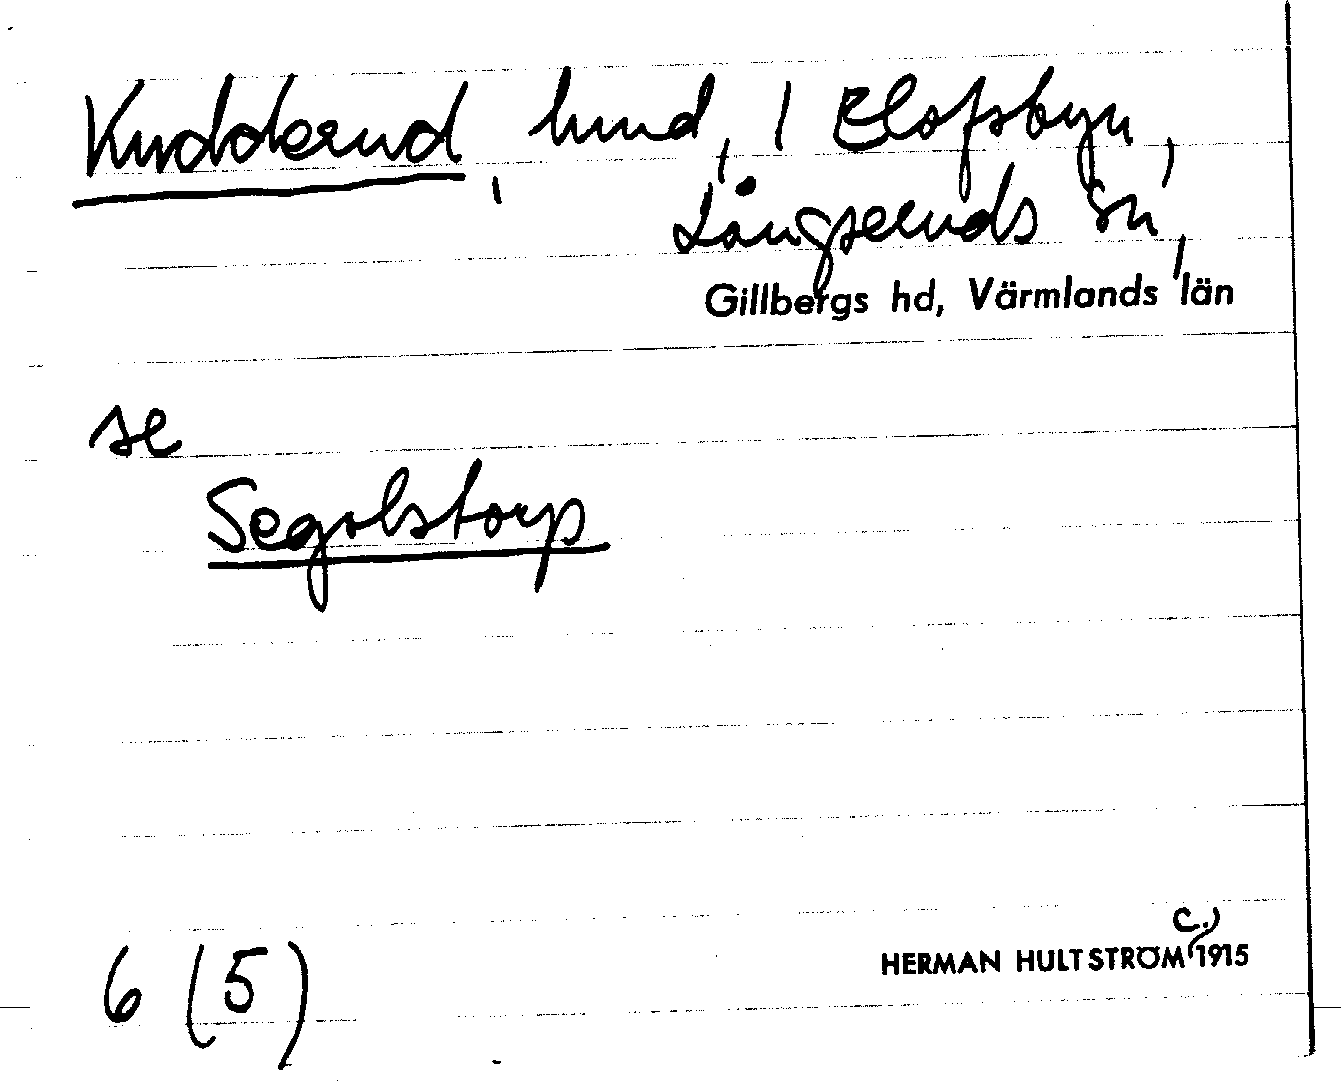 Kudderud, hmd, i Elofsbyn,
Långseruds sn,
Gillbergs hd, Värmlands län
se
Segolstorp
c.
HERMAN HULTSTRÖM 1915
6 (5)